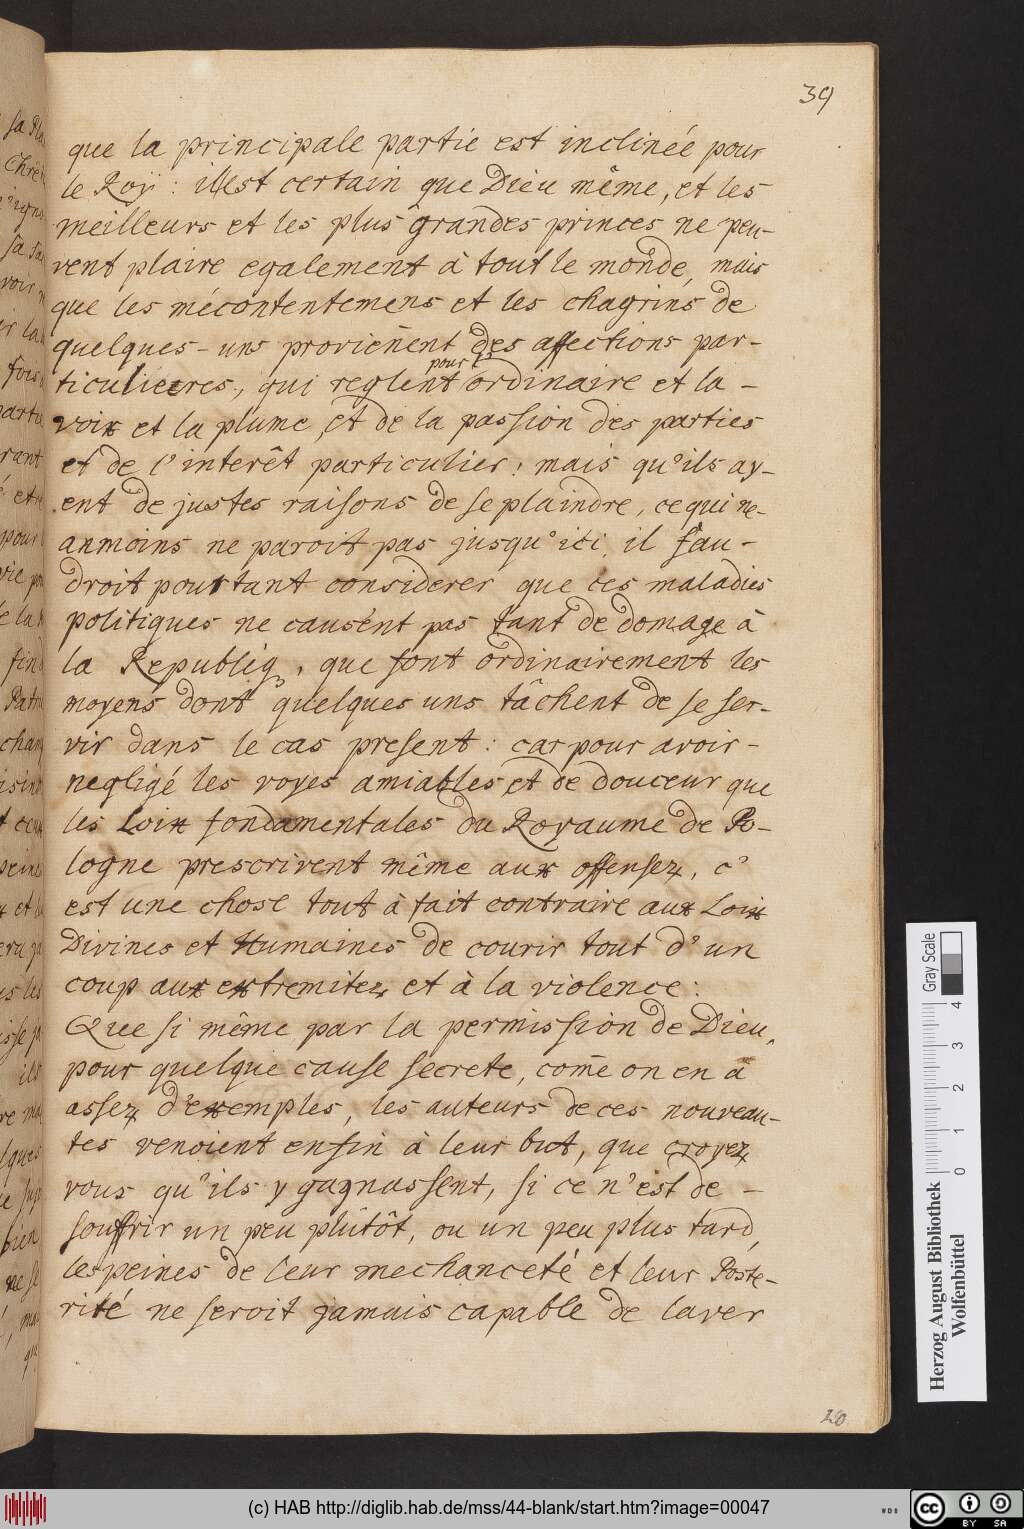 39
que la principale partie est inclinée pour
le Roÿ: illest certain que Dieu même, et les
meilleurs et les plus grandes princes ne peu-
vent plaire egalement à tout le monde, mais
que les mécontentemens et les chagrins de
quelques-uns provieñent des affections par-
ticulieres, qui reglent pour l'ordinaire et la -
voix et la plume, et de la passion des parties
et de l'interêt particulier; mais qu'ils ay-
ent de justes raisons de se plaindre, ce qui ne-
anmoins ne paroit pas jusqu'ici, il fau-
droit pourtant considerer que ces maladies
politiques ne causent pas tant de domage à
la Republiq, que font ordinairement les
moyens dont quelques uns tâchent de se ser-
vir dans le cas present: car pour avoir -
negligé les voyes amiables et de douceur que
les Loix fondamentales du Royaume de Po-
logne prescrivent même aux offensez, c'
est une chose tout à fait contraire aux Loix
Divines et Humaines de courir tout d'un
coup aux extremitez et à la violence:
Que si même par la permission de Dieu,
pour quelque cause secrete, com̃e on en a
assez d'exemples, les auteurs de ces nouveau-
tes venoient enfin à leur but, que croyez
vous qu'ils y gagnassent, si ce n'est de -
souffrir un peu plûtôt, ou un peu plus tard,
les peines de leur mechanceté et leur Poste-
rité ne seroit jamais capable de laver
20
Gray Scale
0 1 2 3 4
Herzog August Bibliothek
Wolfenbüttel
(c) HAB http://diglib.hab.de/mss/44-blank/start.htm?image=00047
WDB
cc BY SA